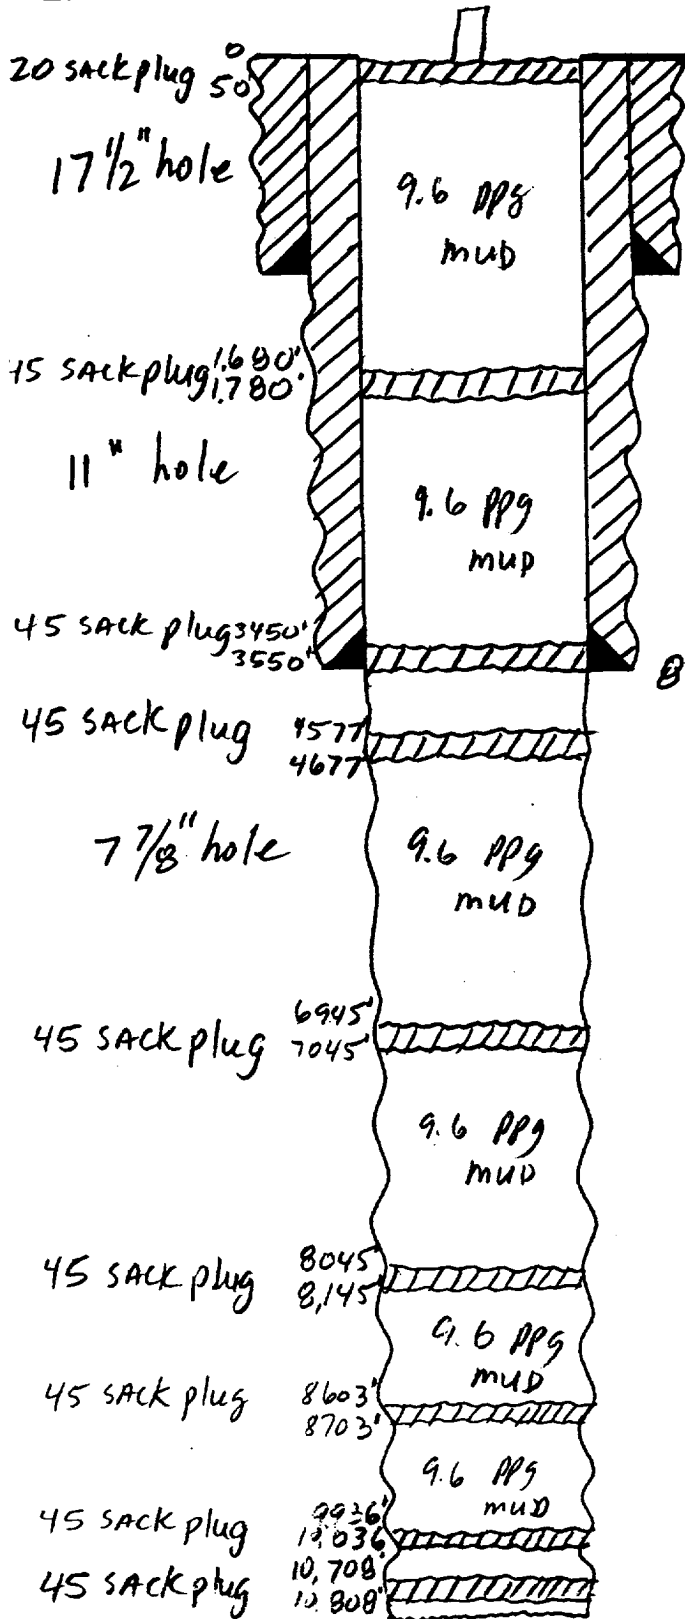 20 SACK plug 0
50'
17 1/2" hole
9.6 ppg
MUD
45 SACK plug 1,680'
1,780'
11" hole
9.6 ppg
MUD
45 SACK plug 3450'
3550'
8
45 SACK plug 4577
4677
7 7/8" hole
9.6 ppg
MUD
45 SACK plug 6945'
7045'
9.6 ppg
MUD
45 SACK plug 8045'
8,145'
9.6 ppg
MUD
45 SACK plug 8603'
8703'
9.6 ppg
MUD
45 SACK plug 9936'
10,036
45 SACK plug 10,708'
10,808'